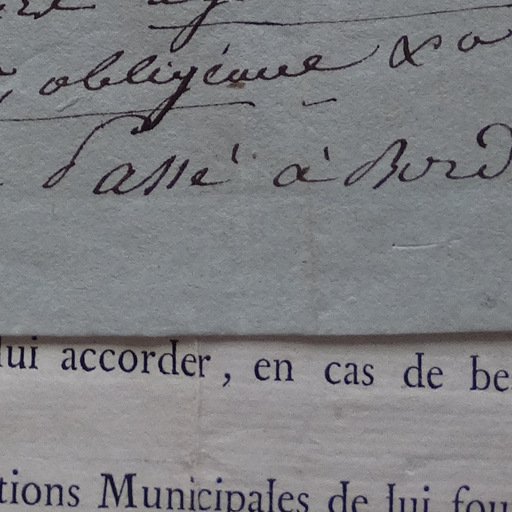 obligeance &a
Passé à Bord
lui accorder, en cas de be
tions Municipales de lui fou